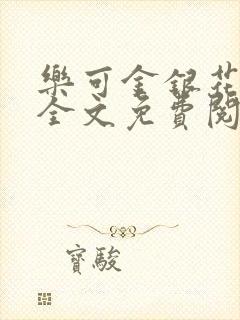 樂可金銀花
全文免費閱
寶駿